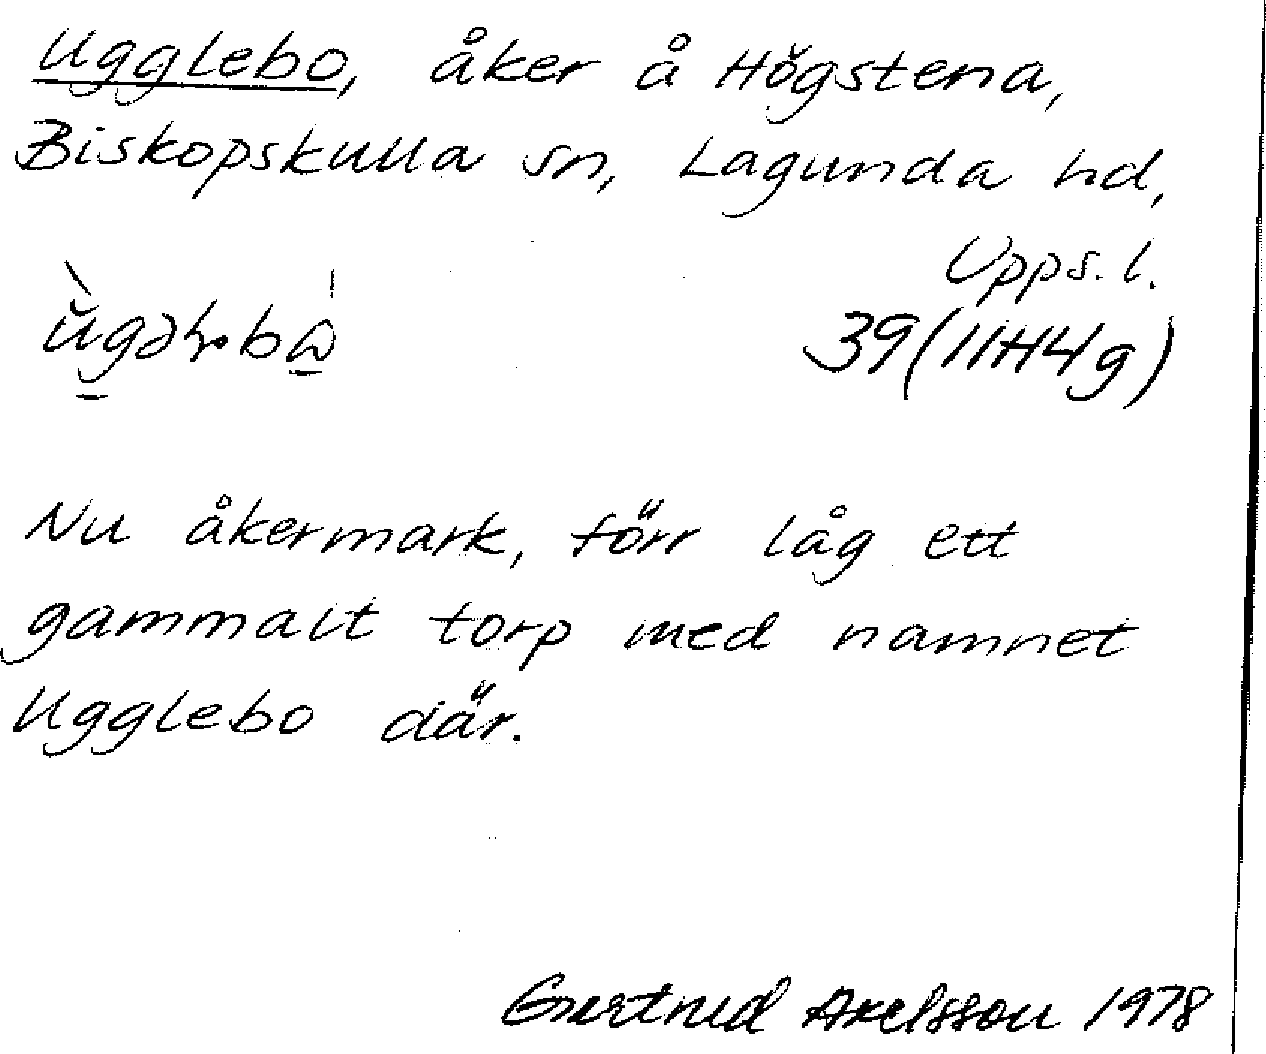 Ugglebo, åker å Högstena,
Biskopskulla sn, Lagunda hd,
Upps. l.
39(11H4g)
Nu åkermark, förr låg ett
gammalt torp med namnet
Ugglebo där.
Gertrud Axelsson 1978